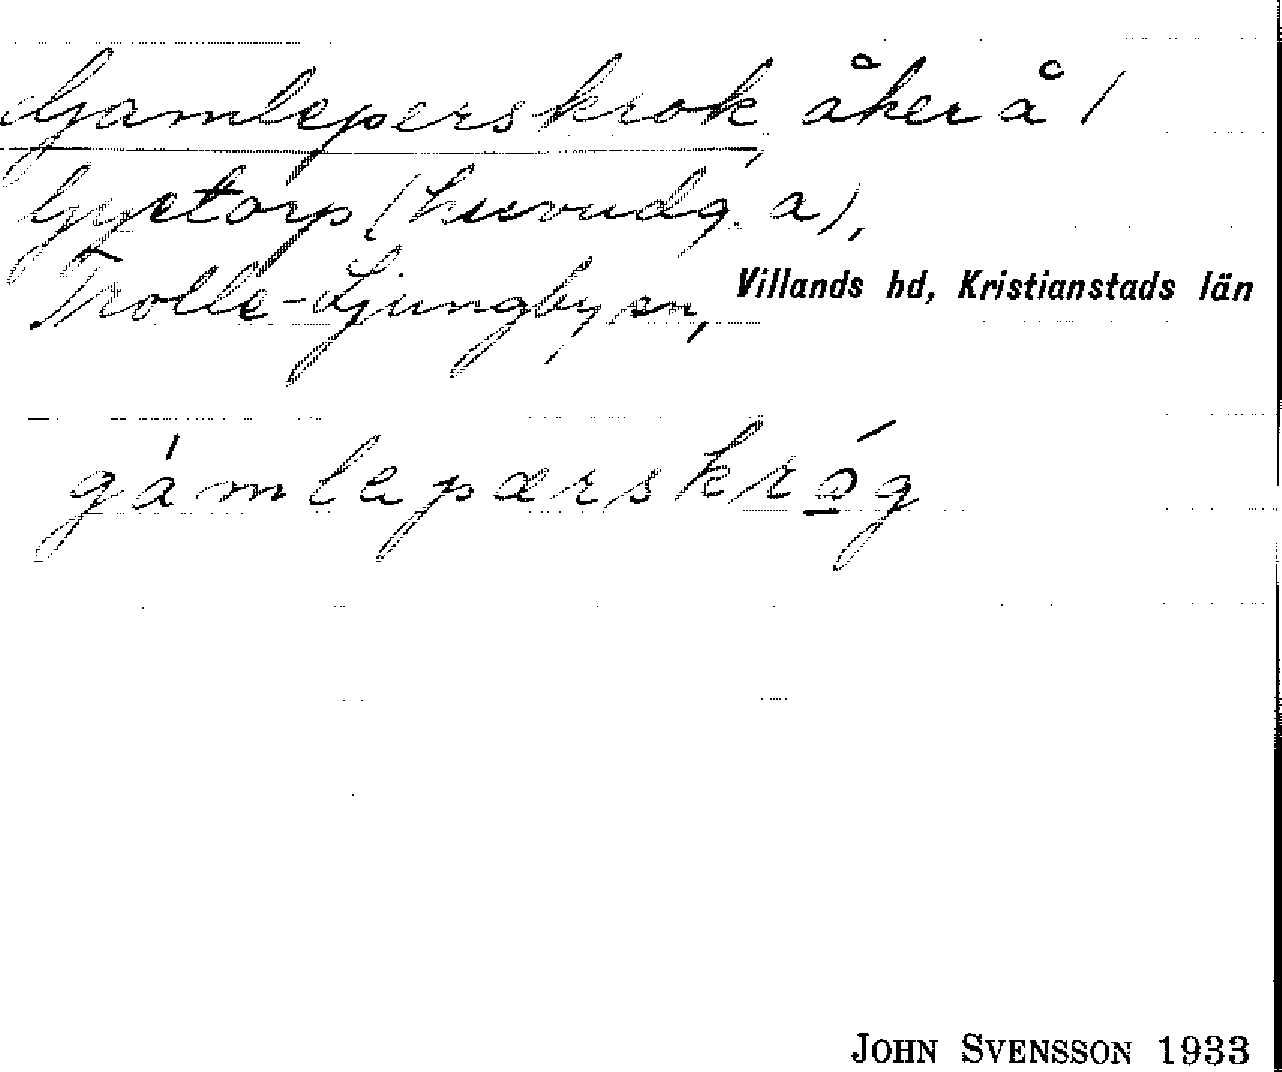 Gamleperskrok, åker å 1
Gyetorp (huvudg. a),
Trolle-Ljungby sn, Villands hd, Kristianstads län
gámlepærskrǫ́g
JOHN SVENSSON 1933